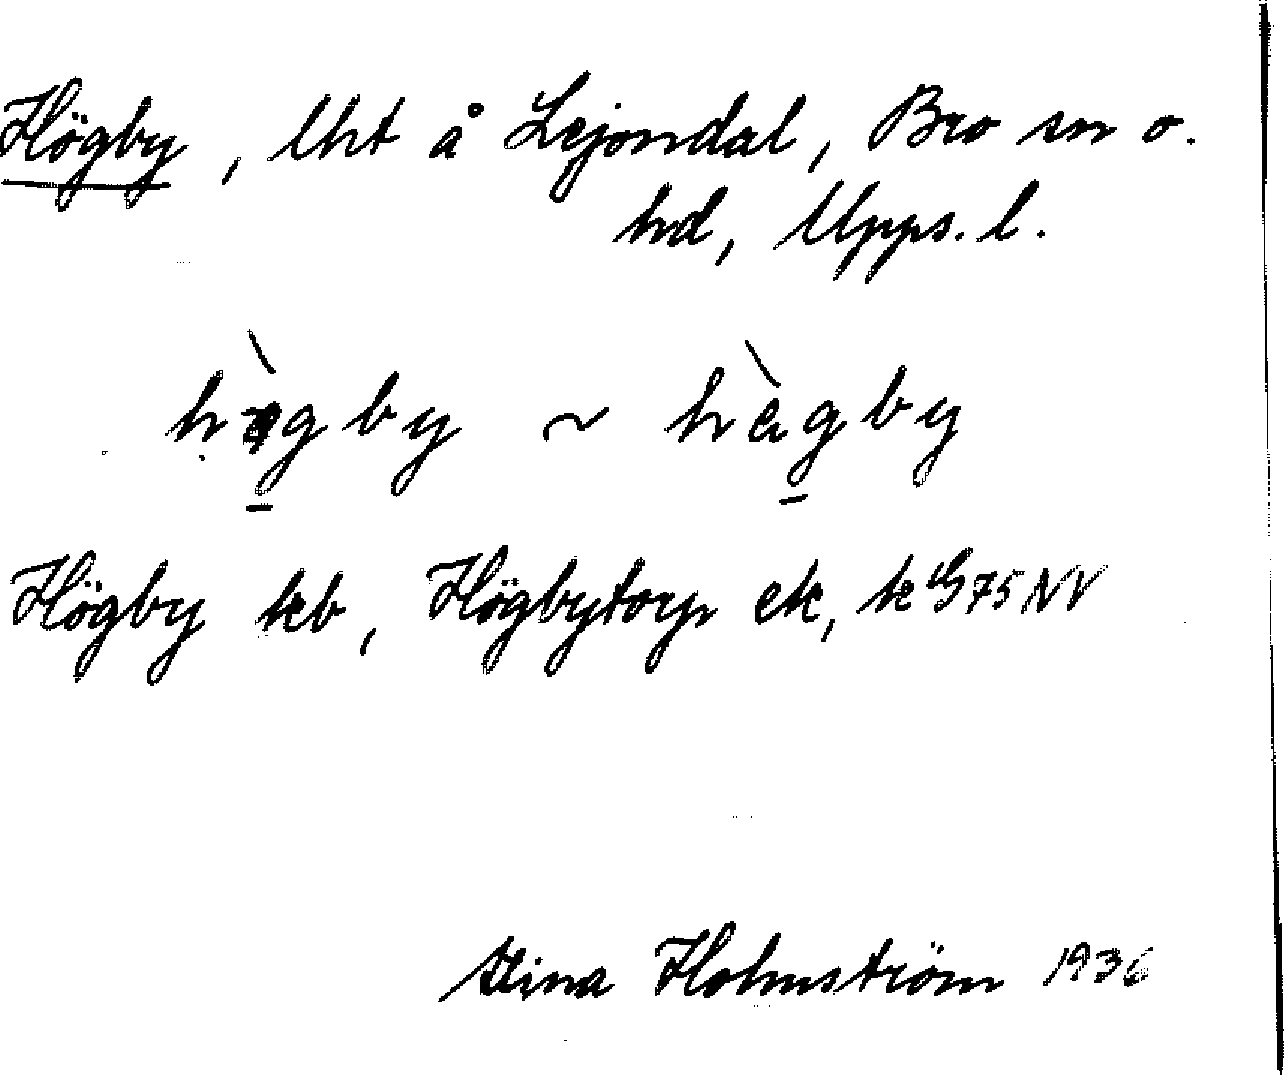 Högby, lht å Lejondal, Bro sn o.
hd, Upps. l.
hògby ~ hàgby
Högby kb, Högbytorp ek, k G75NV
Stina Holmström 1936